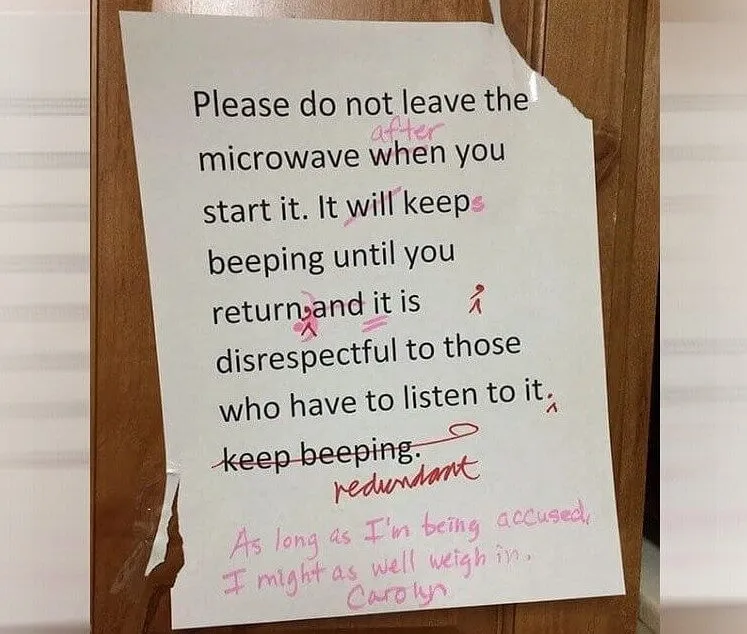 Please do not leave the
after
microwave when you
start it. It will keeps
beeping until you
return, and it is
disrespectful to those
who have to listen to it.
keep beeping.
redundant
As long as I'm being accused,
I might as well weigh in.
Carolyn